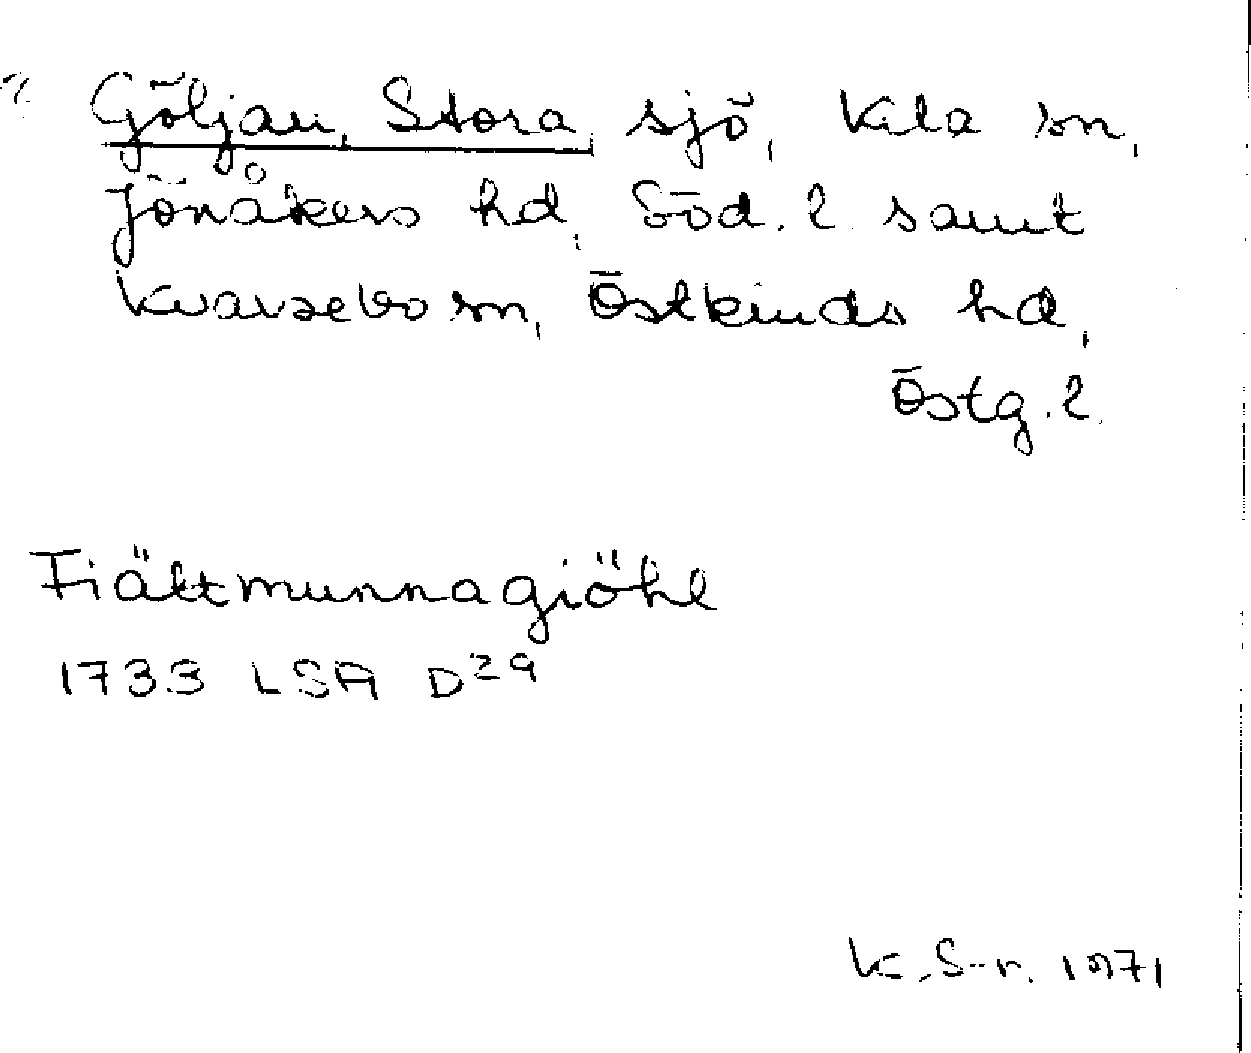 Göljan, Stora, sjö, Kila sn,
Jönåkers hd, Söd. l. samt
Kvarsebo sn, Östkinds hd,
Östg. l.
Fiättmunnagiöhl
1733 LSA D29
K. S-r. 1971